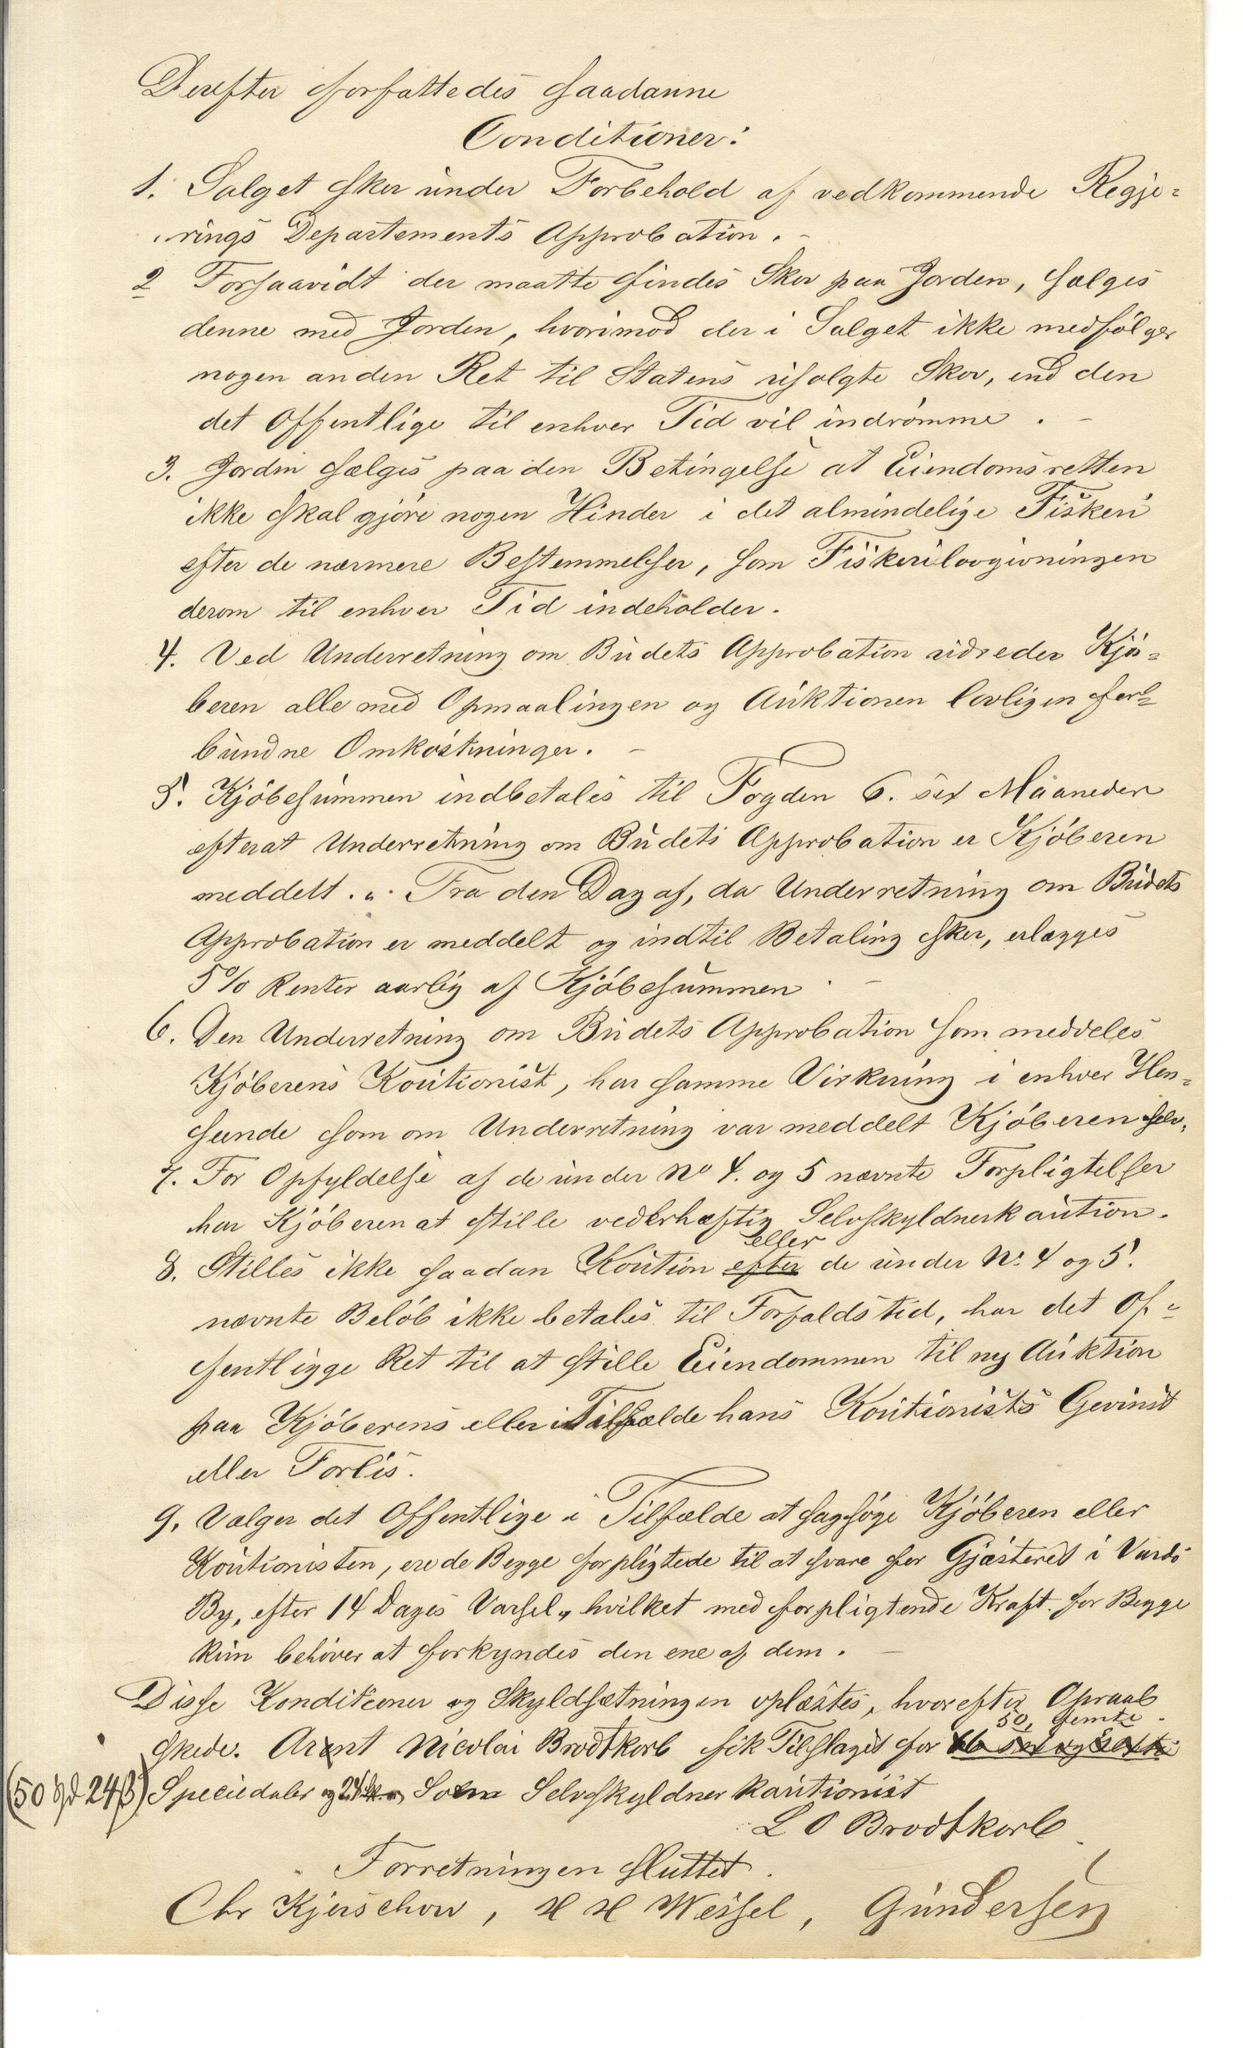 Derefter forfattedes saadanne
Conditioner:
1. Salget sker under Forbehold af vedkommende Regje=
rings Departements Approbation. -
2 Forsaavidt der maatte findes Skov paa Jorden, sælges
denne med Jorden, hvorimod der i Salget ikke medfölger
nogen anden Ret til Statens usolgte Skov, end den
det Offentlige til enhver Tid vil indrömme. -
3. Jorden sælges paa den Betingelse at Eiendomsretten
ikke skal gjöre nogen Hinder i det almindelige Fiskeri
efter de nærmere Bestemmelser, som Fiskerilovgivningen
derom til enhver Tid indeholder.
4. Ved Underretning om Budets Approbation udreder Kjö=
beren alle med Opmaalingen og Auktionen lovligen for=
bundne Omkostninger. -
5. Kjöbesummen indbetales til Fogden 6. sex Maaneder
efterat Underretning om Budets Approbation er Kjöberen
meddelt. „ Fra den Dag af, da Underretning om Budets
Approbation er meddelt og indtil Betaling sker, erlægges
5% Renter aarlig af Kjöbesummen. -
6. Den Underretning om Budets Approbation som meddeles
Kjöberens Koutionist, har samme Virkning i enhver Hen=
seende som om Underretning var meddelt Kjöberen selv.
7. For Opfyldelse af de under No 4. og 5 nævnte Forpligtelser
har Kjöberen at stille vederhæftig Selvskyldnerkaution.
eller
8. Stilles ikke saadan Koution efter de under No. 4 og 5.
nævnte Belöb ikke betales til Forfaldstid, har det Of=
fentligge Ret til at stille Eiendommen til ny Auktion
paa Kjöberens eller i Tilfælde hans Koutionists Gevinst
eller Forlis.
9. Vælger det Offentlige i Tilfælde at sagsöge Kjöberen eller
Koutionisten, ere de Begge forpligtede til at svare for Gjæsteret i Vardö
By, efter 14 Dages Varsel, hvilket med forpligtende Kraft for Begge
kun behöver at forkyndes den ene af dem. -
Disse Konditioner og Skyldsætningen oplæstes, hvorefter Opraab
50, femti
skede. Arent Nicolai Brodtkorb fik Tilslaget for
(50 Spd 24 β) Speciedaler og 24 Som Selvskyldner kautionist
L O Brodtkorb
Forretningen sluttet.
Chr Kjerschow, H H Wessel, Gundersen